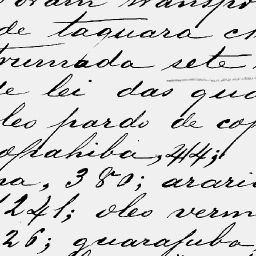 de taquara
rumada sete
de lei das
leo pardo de
copahiba, 44;
380; arari
1241; oleo verm
26; guarafuba